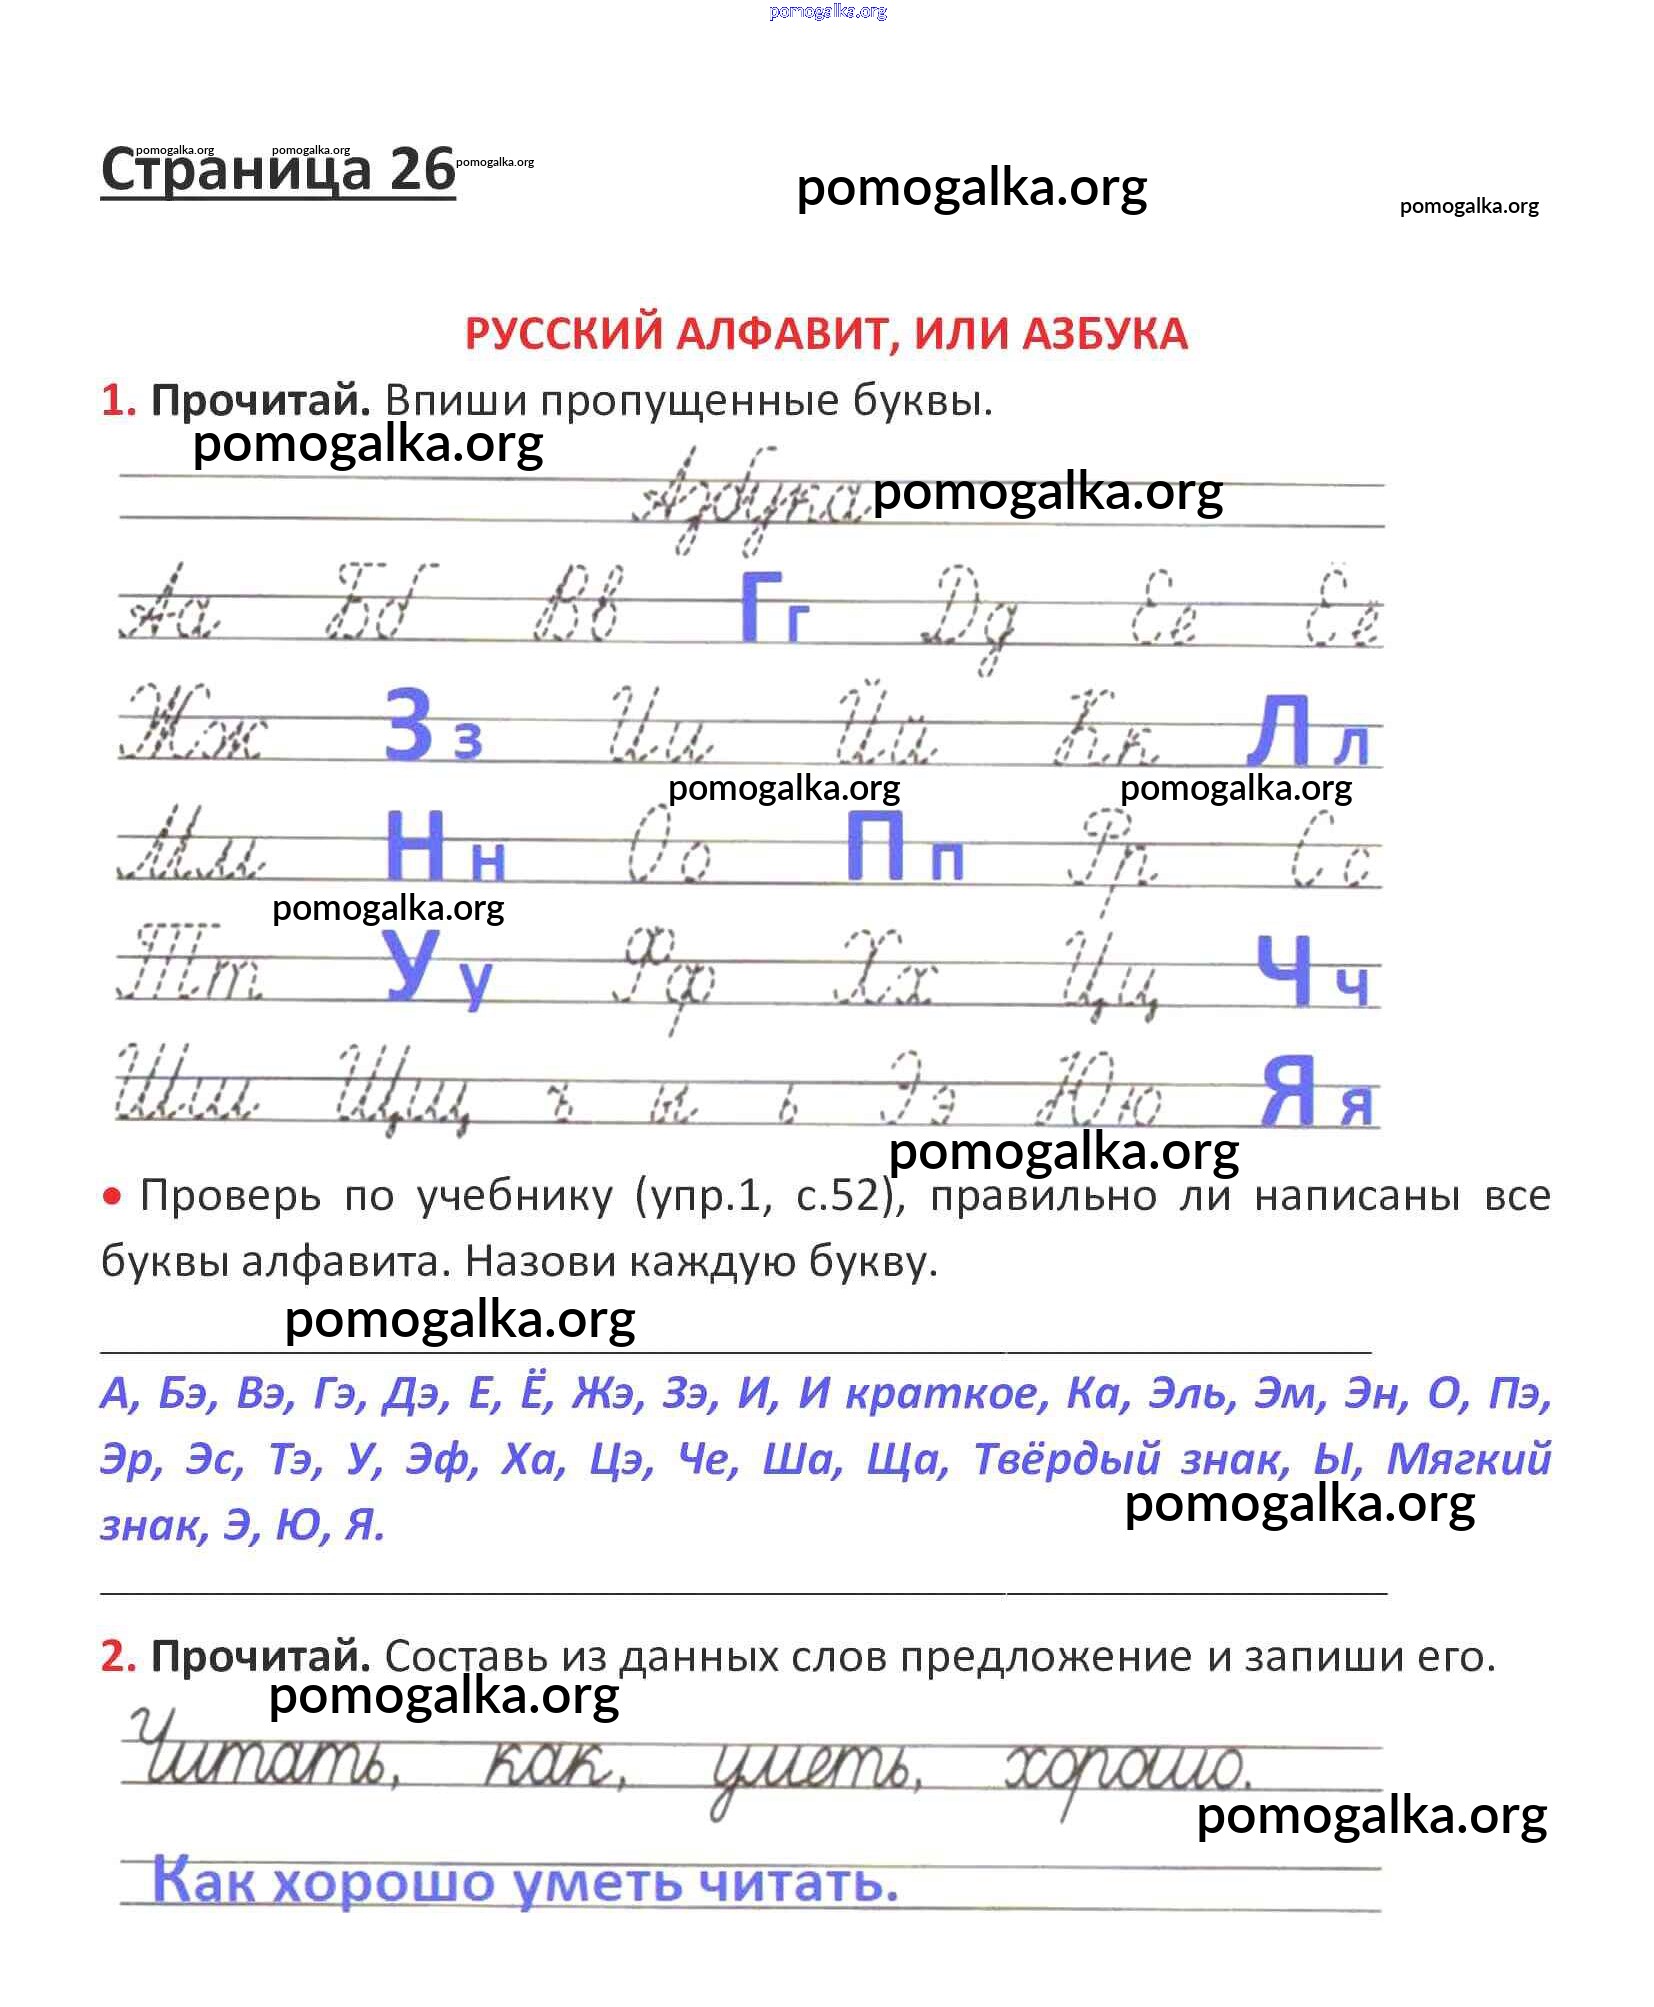 pomogalka.org
Страница 26
pomogalka.org pomogalka.org pomogalka.org
pomogalka.org
pomogalka.org
РУССКИЙ АЛФАВИТ, ИЛИ АЗБУКА
1. Прочитай. Впиши пропущенные буквы.
pomogalka.org
Азбука
pomogalka.org
Аа Бб Вв Гг Дд Ее Ёё
Жж Зз Ии Йй Кк Лл
pomogalka.org pomogalka.org
Мм Нн Оо Пп Рр Сс
pomogalka.org
Тт Уу Фф Хх Цц Чч
Шш Щщ ъ ы ь Ээ Юю Яя
pomogalka.org
• Проверь по учебнику (упр.1, с.52), правильно ли написаны все
буквы алфавита. Назови каждую букву.
pomogalka.org
А, Бэ, Вэ, Гэ, Дэ, Е, Ё, Жэ, Зэ, И, И краткое, Ка, Эль, Эм, Эн, О, Пэ,
Эр, Эс, Тэ, У, Эф, Ха, Цэ, Че, Ша, Ща, Твёрдый знак, Ы, Мягкий
pomogalka.org
знак, Э, Ю, Я.
2. Прочитай. Составь из данных слов предложение и запиши его.
pomogalka.org
Читать, как, уметь, хорошо.
pomogalka.org
Как хорошо уметь читать.